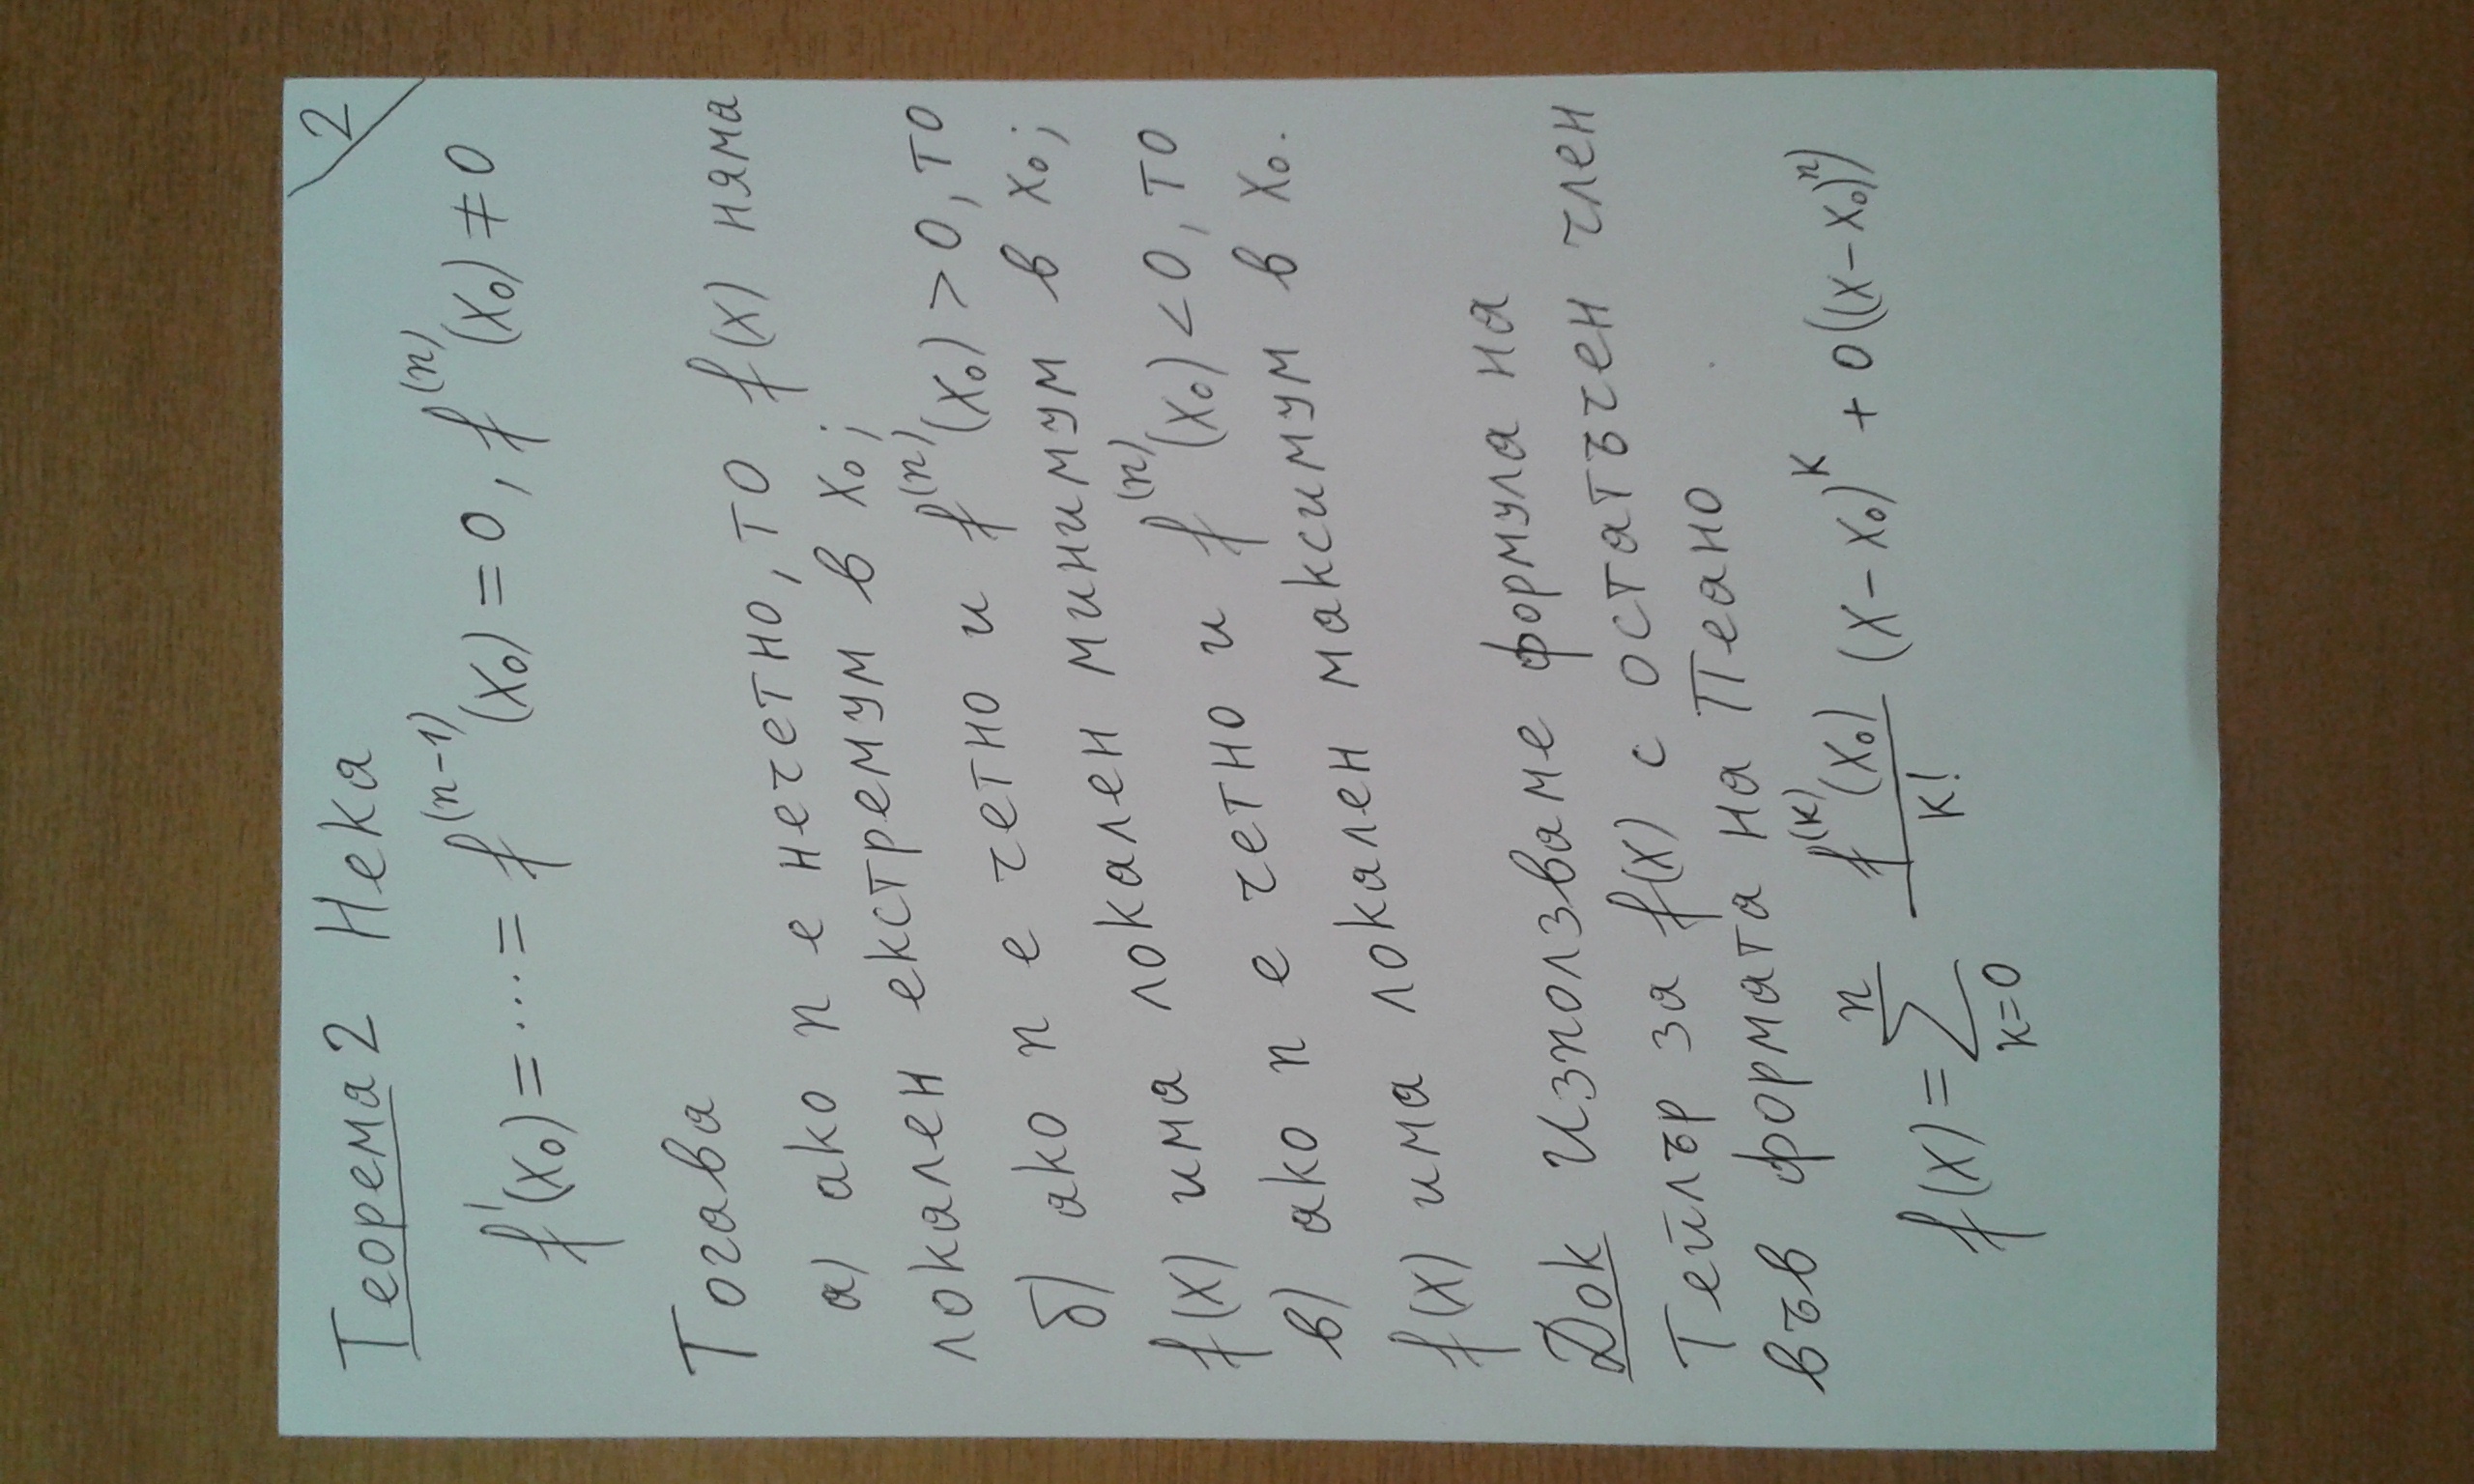 2
Теорема 2 Нека
f'(x₀) = ··· = f⁽ⁿ⁻¹⁾(x₀) = 0, f⁽ⁿ⁾(x₀) ≠ 0
Тогава
а) ако n е нечетно, то f(x) няма
локален екстремум в x₀;
б) ако n е четно и f⁽ⁿ⁾(x₀) > 0, то
f(x) има локален минимум в x₀;
в) ако n е четно и f⁽ⁿ⁾(x₀) < 0, то
f(x) има локален максимум в x₀.
Док Използваме формула на
Тейлър за f(x) с остатъчен член
във формата на Пеано
f(x) = \sum_{k=0}^{n} \frac{f^{(k)}(x₀)}{k!} (x-x₀)^k + o((x-x₀)^n)